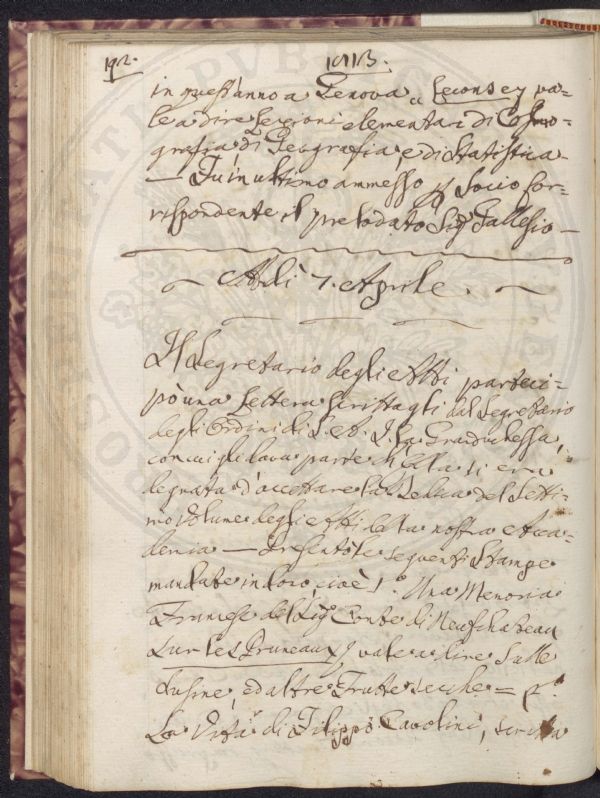 192. 1813.
in quest'anno a Genova „ Leconsey va=
le a dire Lezzioni elementari di Cosmo-
grafia, di Geografia, e di Statistica-
— Fu in ultimo ammesso p Socio Cor-
rispondente il prelodato Sig.r Gallesio —
Adì 7. Aprile.
Il Segretario degli Atti parteci=
pò una Lettera scrittagli dal Segretario
degli Ordini di S. A. I. la Granduchessa,
con cui gli dava parte ch'Ella si era
degnata d'accettare la Dedica del Setti=
mo Volume degli Atti della nostra Acca=
demia — Presentò le seguenti Stampe
mandate in dono, cioè 1.° Una Memoria
Francese del Sig.r Conte di Neufchateau
Sur les Pruneaux, vale a dire Sulle
Susine, ed altre Frutte secche = 2.°
La Vita di Filippo Cavolini, scritta